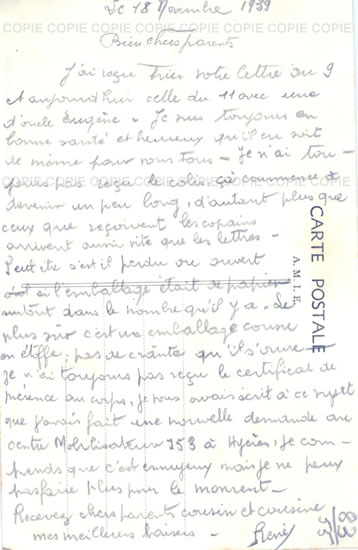 COPIE COPIE COPIE COPIE COPIE COPIE COPIE COPIE
Le 18 Novembre 1939
Bien chers parents
J'ai reçu hier votre lettre du 9
et aujourd'hui celle du 11 avec une
d'oncle Eugène. Je suis toujours en
bonne santé et heureux qu'il en soit
de même pour vous tous - Je n'ai tou-
jours pas reçu le colis ça commence à
devenir un peu long, d'autant plus que
ceux que reçoivent les copains
arrivent aussi vite que les lettres -
Peut être s'est il perdu ou ouvert
si l'emballage était de papier
surtout dans le nombre qu'il y a. Le
plus sûr c'est un emballage cousu
en étoffe; pas de crainte qu'il s'ouvre -
Je n'ai toujours pas reçu le certificat de
présence au corps, je vous avais écrit à ce sujet
que j'avais fait une nouvelle demande au
centre Mobilisateur 153 à Hyères, je com-
prends que c'est ennuyeux mais je ne peux
pas faire plus pour le moment -
Recevez chers parents cousin et cousine
mes meilleurs baisers - René
CARTE POSTALE
A. M. I. E.